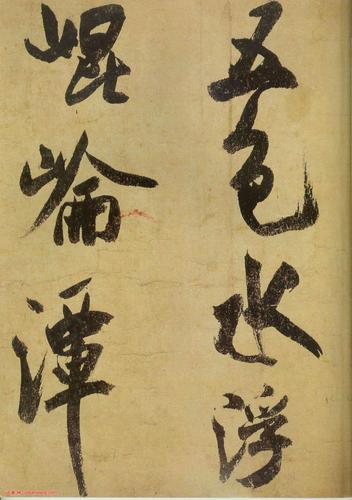 五色水浮
崐崘潭